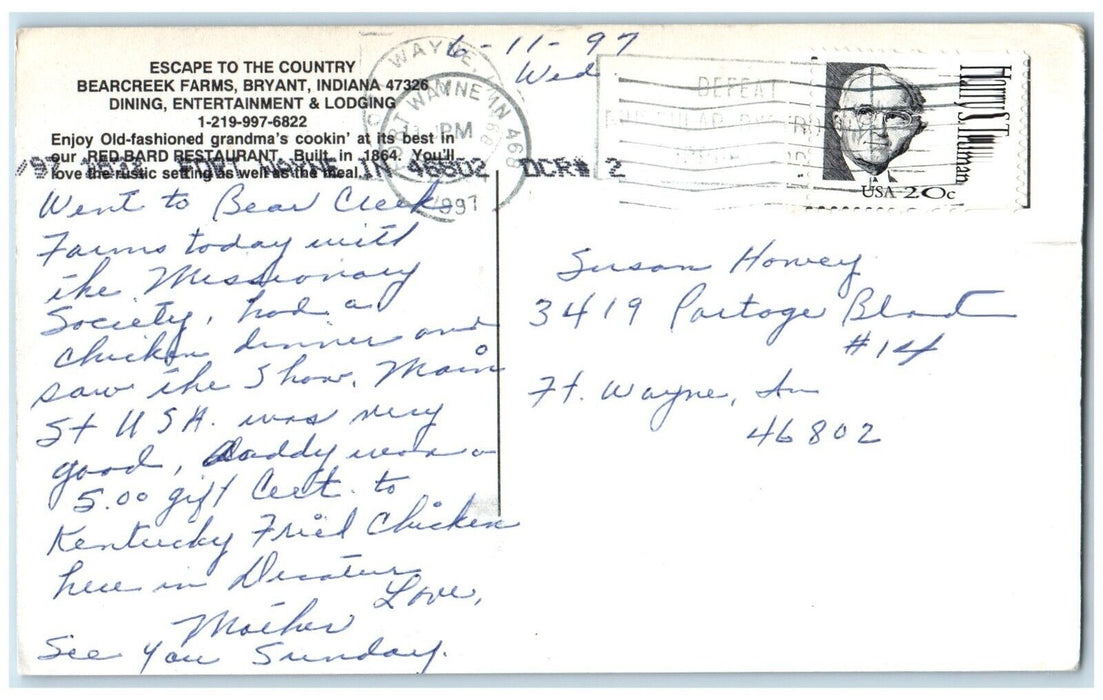 ESCAPE TO THE COUNTRY
BEARCREEK FARMS, BRYANT, INDIANA 47326
DINING, ENTERTAINMENT & LODGING
1-219-997-6822
Enjoy Old-fashioned grandma's cookin' at its best in
our RED BARD RESTAURANT. Built in 1864. You'll
love the rustic setting as well as the meal.
FORT WAYNE IN 46802 DCR# 2
6-11-97
Wed
FORT WAYNE IN 468
PM
1997
DEFEAT
Harry S. Truman
USA 20c
Went to Bear Creek
Farms today with
the Missionary
Society, had a
chicken dinner and
saw the show. Main
St USA. was very
good, Daddy won a
5.00 gift Cert. to
Kentucky Fried Chicken
here in Decatur
Love,
Mother
See you Sunday.
Susan Howey
3419 Portage Blvd
#14
Ft. Wayne, In
46802